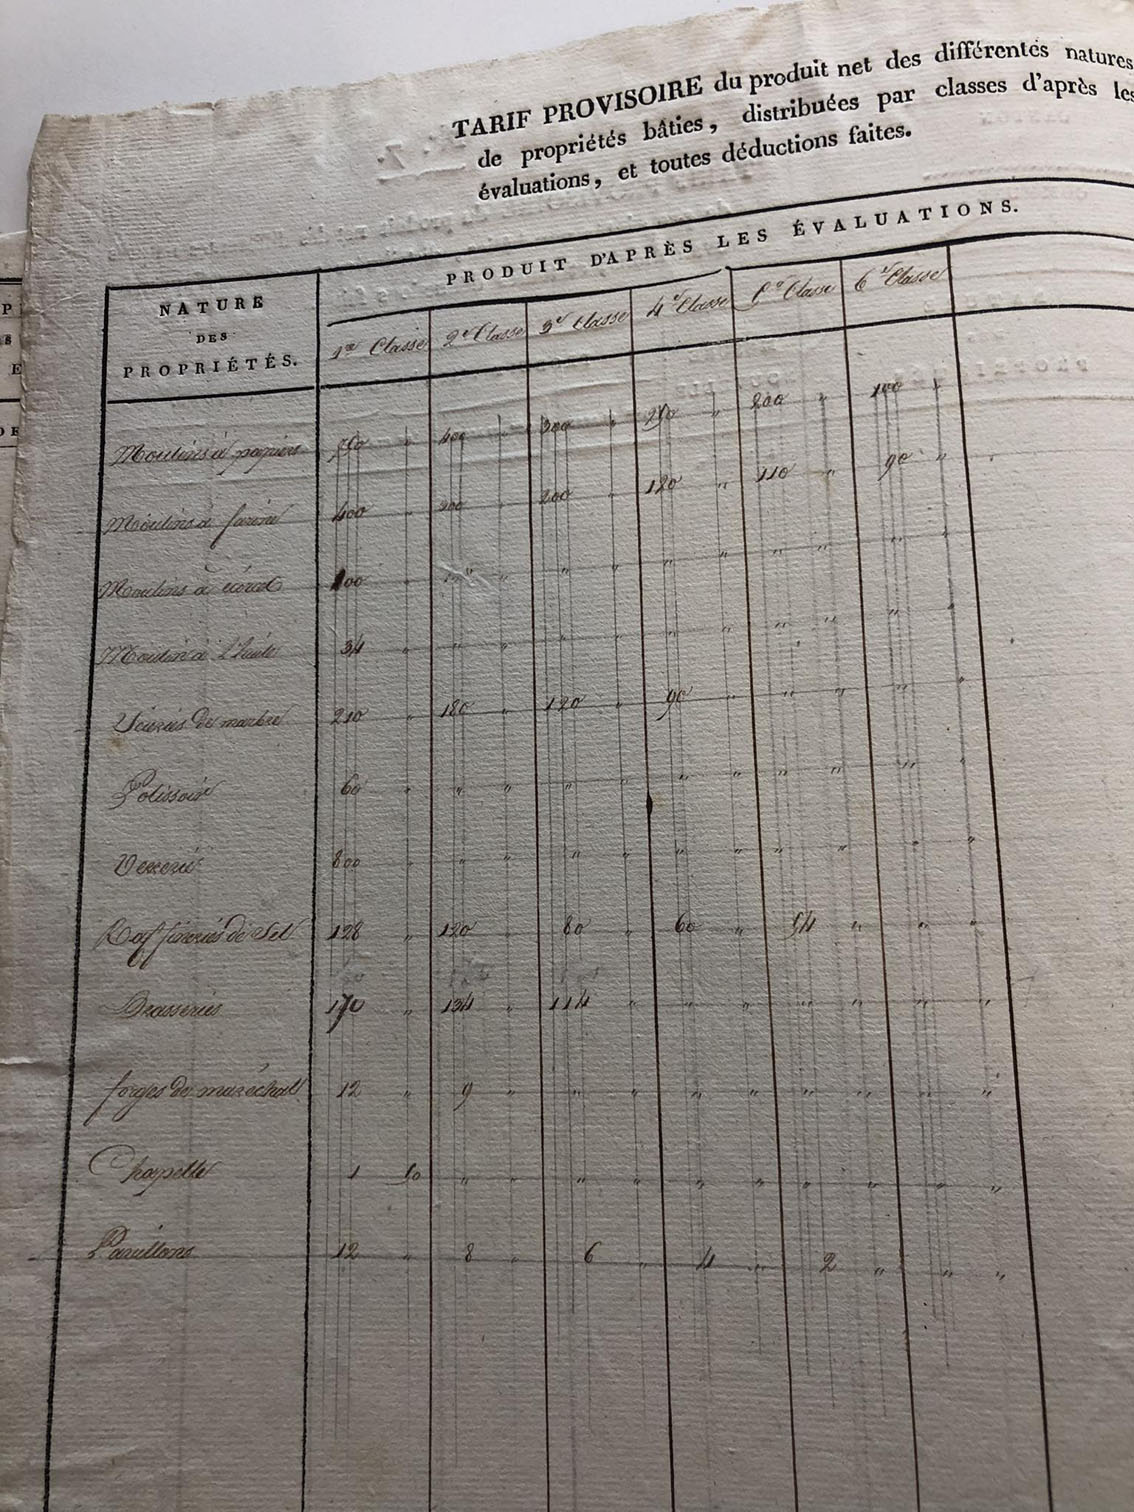 TARIF PROVISOIRE du produit net des différentes natures
de propriétés bâties, distribuées par classes d'après les
évaluations, et toutes déductions faites.
NATURE
DES
PROPRIÉTÉS.
PRODUIT D'APRÈS LES ÉVALUATIONS.
1re Classe 2e Classe 3e Classe 4e Classe 5e Classe 6e Classe
Moulins à papiers 400 " 300 " " 200 " 100 "
Moulins à farine 400 " 300 " 200 " 120 " 110 " 90 "
Moulins à écorce 100 " " " " " " " " " "
Moulin à l'huile 34 " " " " " " " " " "
Scieries de marbre 210 " 180 " 120 " 90 " " " " "
Polissoir 60 " " " " " " " " " " "
Verrerie 800 " " " " " " " " " " "
Raffineries de Sel 128 " 120 " 80 " 60 " 54 " " "
Brasseries 170 " 134 " 114 " " " " " " "
forges de maréchall 12 " 9 " " " " " " " " "
Chapelle 1 50 " " " " " " " " " "
Pavillons 12 " 8 " 6 " 4 " 2 " " "